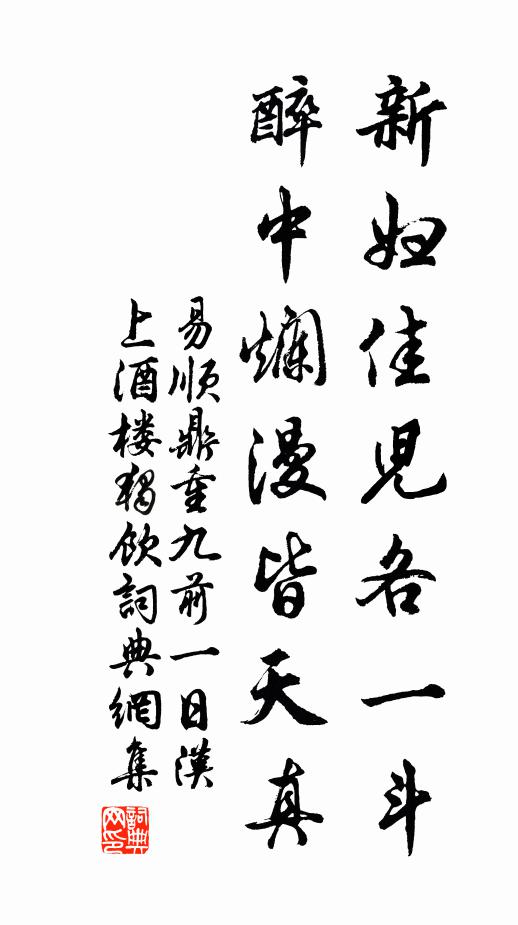 新妇佳児各一斗
醉中爛漫皆天真
易顺鼎重九前一日漢
上酒楼獨飲詞典網集
詞典
网印